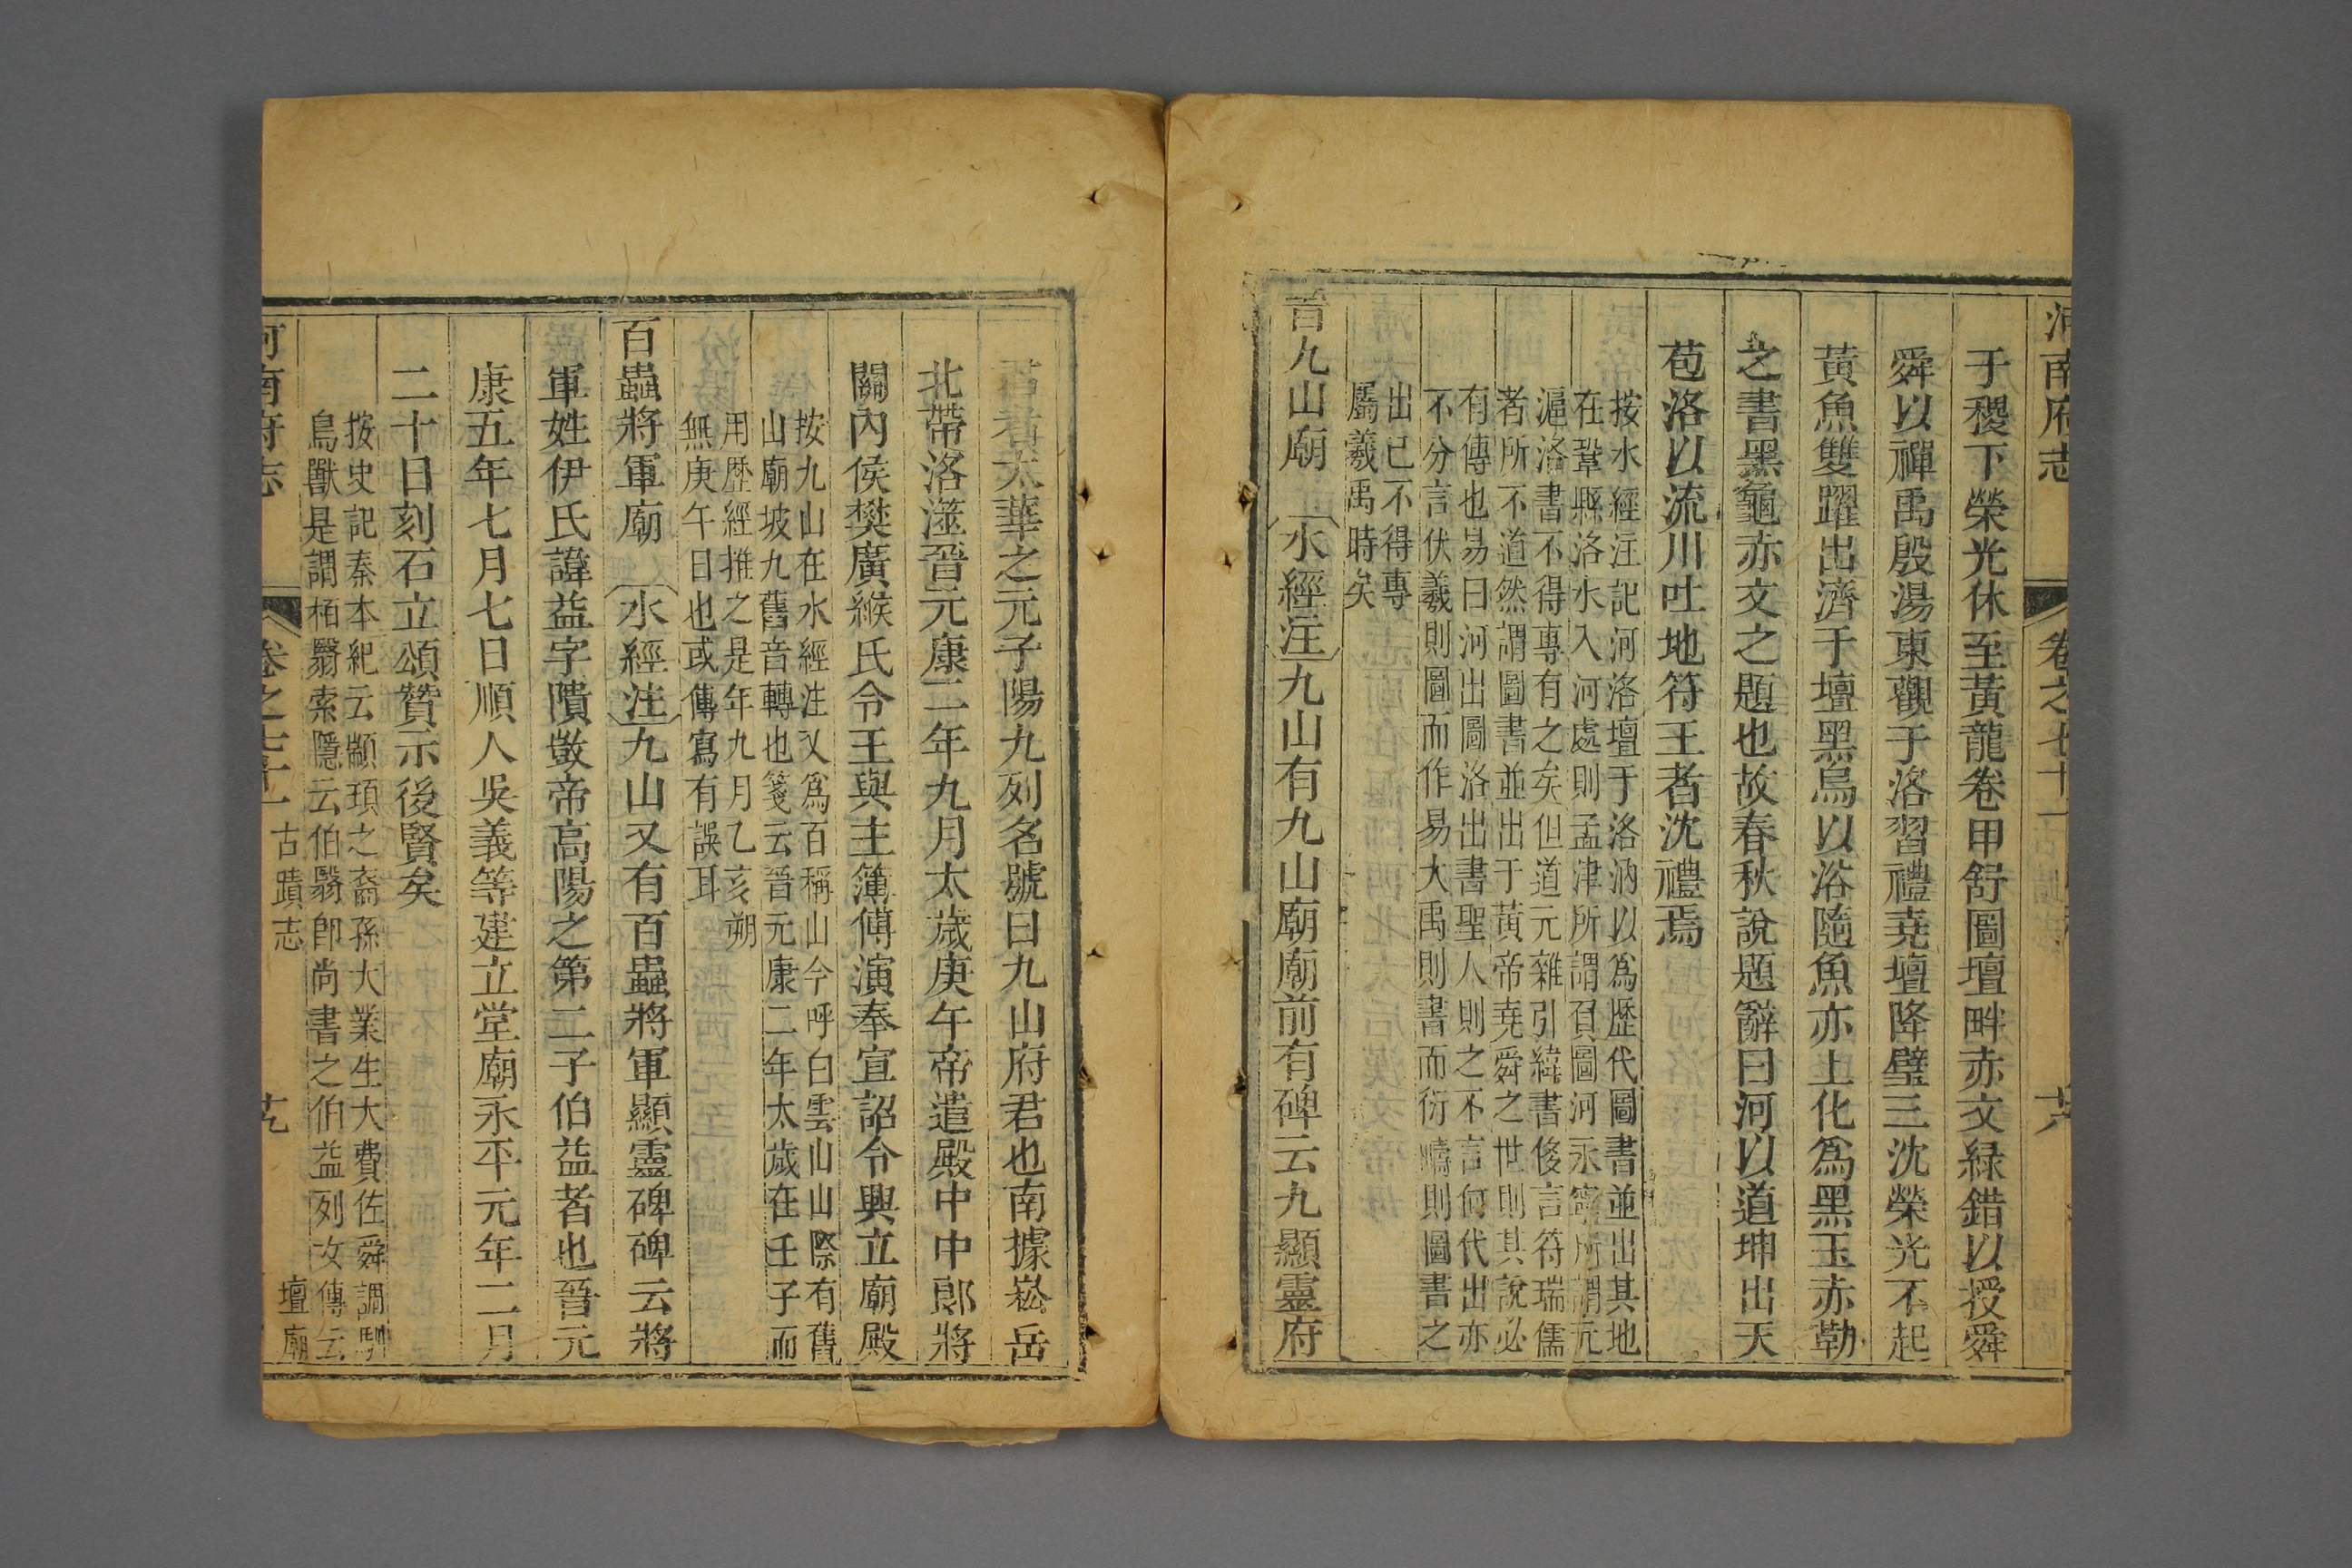 河南府志 卷之七十一
于稷下榮光休至黃龍卷甲舒圖壇畔赤文緑錯以授舜
舜以禪禹殷湯東觀于洛習禮堯壇降璧三沈榮光不起
黃魚雙躍出濟于壇黑烏以浴隨魚亦上化爲黑玉赤勒
之書黑龜亦文之題也故春秋說題辭曰河以道坤出天
苞洛以流川吐地符王者沈禮焉
按水經注記河洛壇于洛汭以爲歴代圖書並出其地
在鞏縣洛水入河處則孟津所謂負圖河永寧所謂元
滬洛書不得專有之矣但道元雜引緯書侈言符瑞儒
者所不道然謂圖書並出于黃帝堯舜之世則其說必
有傳也易曰河出圖洛出書聖人則之不言何代出亦
不分言伏羲則圖而作易大禹則書而衍疇則圖書之
出已不得專
屬羲禹時矣
晉九山廟 水經注九山有九山廟廟前有碑云九顯靈府
君者太華之元子陽九列名號曰九山府君也南據崧岳
北帶洛澨晉元康二年九月太歲庚午帝遣殿中中郎將
關內侯樊廣緱氏令王與主簿傅演奉宣詔令興立廟殿
按九山在水經注又爲百稱山今呼白雲山山際有舊
山廟坡九舊音轉也箋云晉元康二年太歲在壬子而
用歴經推之是年九月乙亥朔
無庚午日也或傳寫有誤耳
百蟲將軍廟 水經注九山又有百蟲將軍顯靈碑碑云將
軍姓伊氏諱益字隤敳帝高陽之第二子伯益者也晉元
康五年七月七日順人吳義等建立堂廟永平元年二月
二十日刻石立頌贊示後賢矣
按史記秦本紀云顓頊之裔孫大業生大費佐舜調馴
鳥獸是謂栢翳索隱云伯翳卽尚書之伯益列女傳云
河南府志 卷之七十一 古蹟志 壇廟